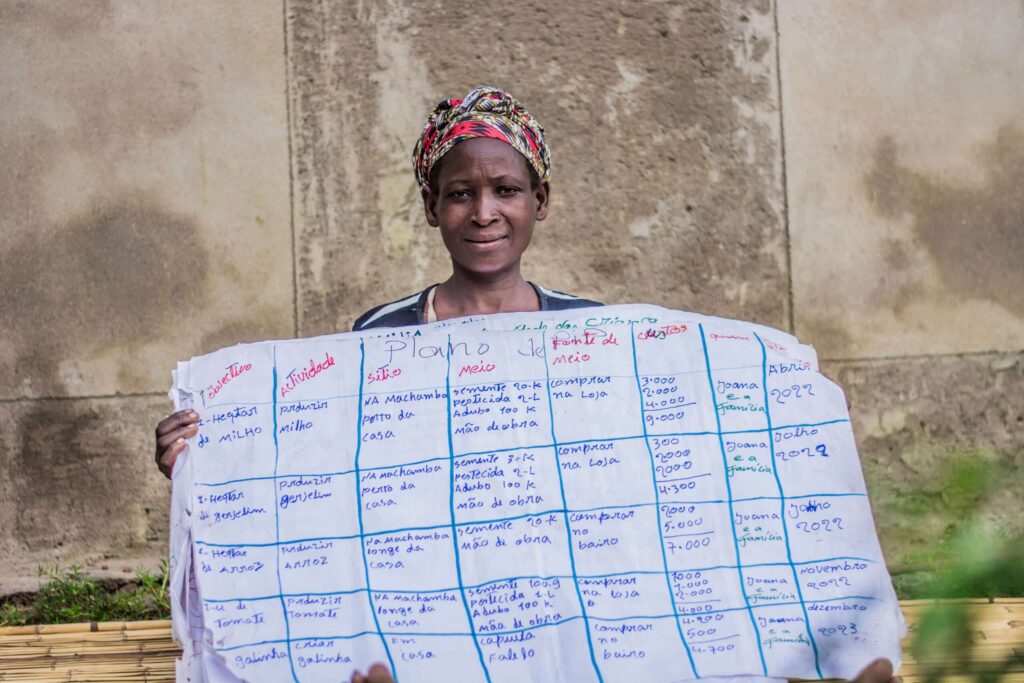 Plano de
objectivo Actividade sitio Meio Fonte de Meio custos
1-Hectar de MiLHO
produzir Milho
NA Machamba perto da casa
semente 20.K
pesticida 2-L
Adubo 100 K
mão de obra
comprar na Loja
3.000
2.000
4.000
9.000
Joana e a família
Abrir 2022
produzir gerjelim
NA Machamba perto da casa
semente 3-K
pesticida 2-L
Adubo 100 K
mão de obra
comprar na Loja
300
2000
2000
4.300
Joana e a família
Jolho
de gerjelim
Hectar de ARROZ
produzir ARROZ
NA Machamba longe da casa
semente 20.K
mão de obra
comprar no bairro
2000
5.000
7.000
Joana e a família
2022
de Tomate
produzir Tomate
NA Machamba longe da casa
semente 100.g
pesticida 2-L
Adubo 100 K
mão de obra
comprar na Loja
1.000
2.000
4.000
Joana e a família
Novembro 2022
galinha
criar galinha
em casa
comprar no bairro
4.200
500
4.700
Joana e a família
dezembro 2023